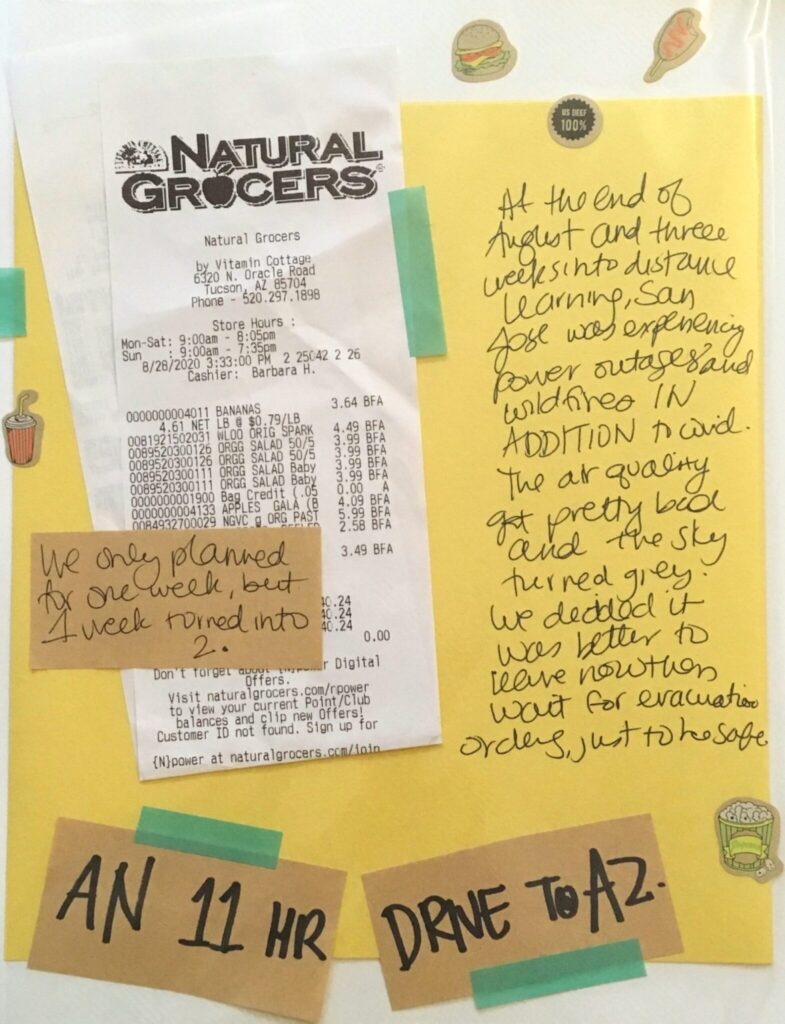 NATURAL
GROCERS
Natural Grocers
by Vitamin Cottage
6320 N. Oracle Road
Tucson, AZ 85704
Phone - 520.297.1898
Store Hours :
Mon-Sat: 9:00am - 8:05pm
Sun : 9:00am - 7:35pm
8/28/2020 3:33:00 PM 2 25042 2 26
Cashier: Barbara H.
0000000004011 BANANAS 3.64 BFA
4.61 NET LB @ $0.79/LB
0081921502031 WLOO ORIG SPARK 4.49 BFA
0089520300126 ORGG SALAD 50/5 3.99 BFA
0089520300126 ORGG SALAD 50/5 3.99 BFA
0089520300111 ORGG SALAD Baby 3.99 BFA
0089520300111 ORGG SALAD Baby 3.99 BFA
0000000001900 Bag Credit (.05 0.00 A
0000000004133 APPLES GALA (B 4.09 BFA
0084932700029 NGVC g ORG PAST 5.99 BFA
2.58 BFA
3.49 BFA
We only planned
for one week, but
1 week turned into
2.
40.24
40.24
40.24
0.00
Don't forget about {N}power Digital
Offers.
Visit naturalgrocers.com/npower
to view your current Point/Club
balances and clip new Offers!
Customer ID not found. Sign up for
{N}power at naturalgrocers.com/join
US BEEF
100%
At the end of
August and three
weeks into distance
learning, San
Jose was experiencing
power outages and
wildfires IN
ADDITION to covid.
The air quality
got pretty bad
and the sky
turned grey.
We decided it
was better to
leave now then
wait for evacuation
orders, just to be safe.
AN 11 HR
DRIVE TO AZ.